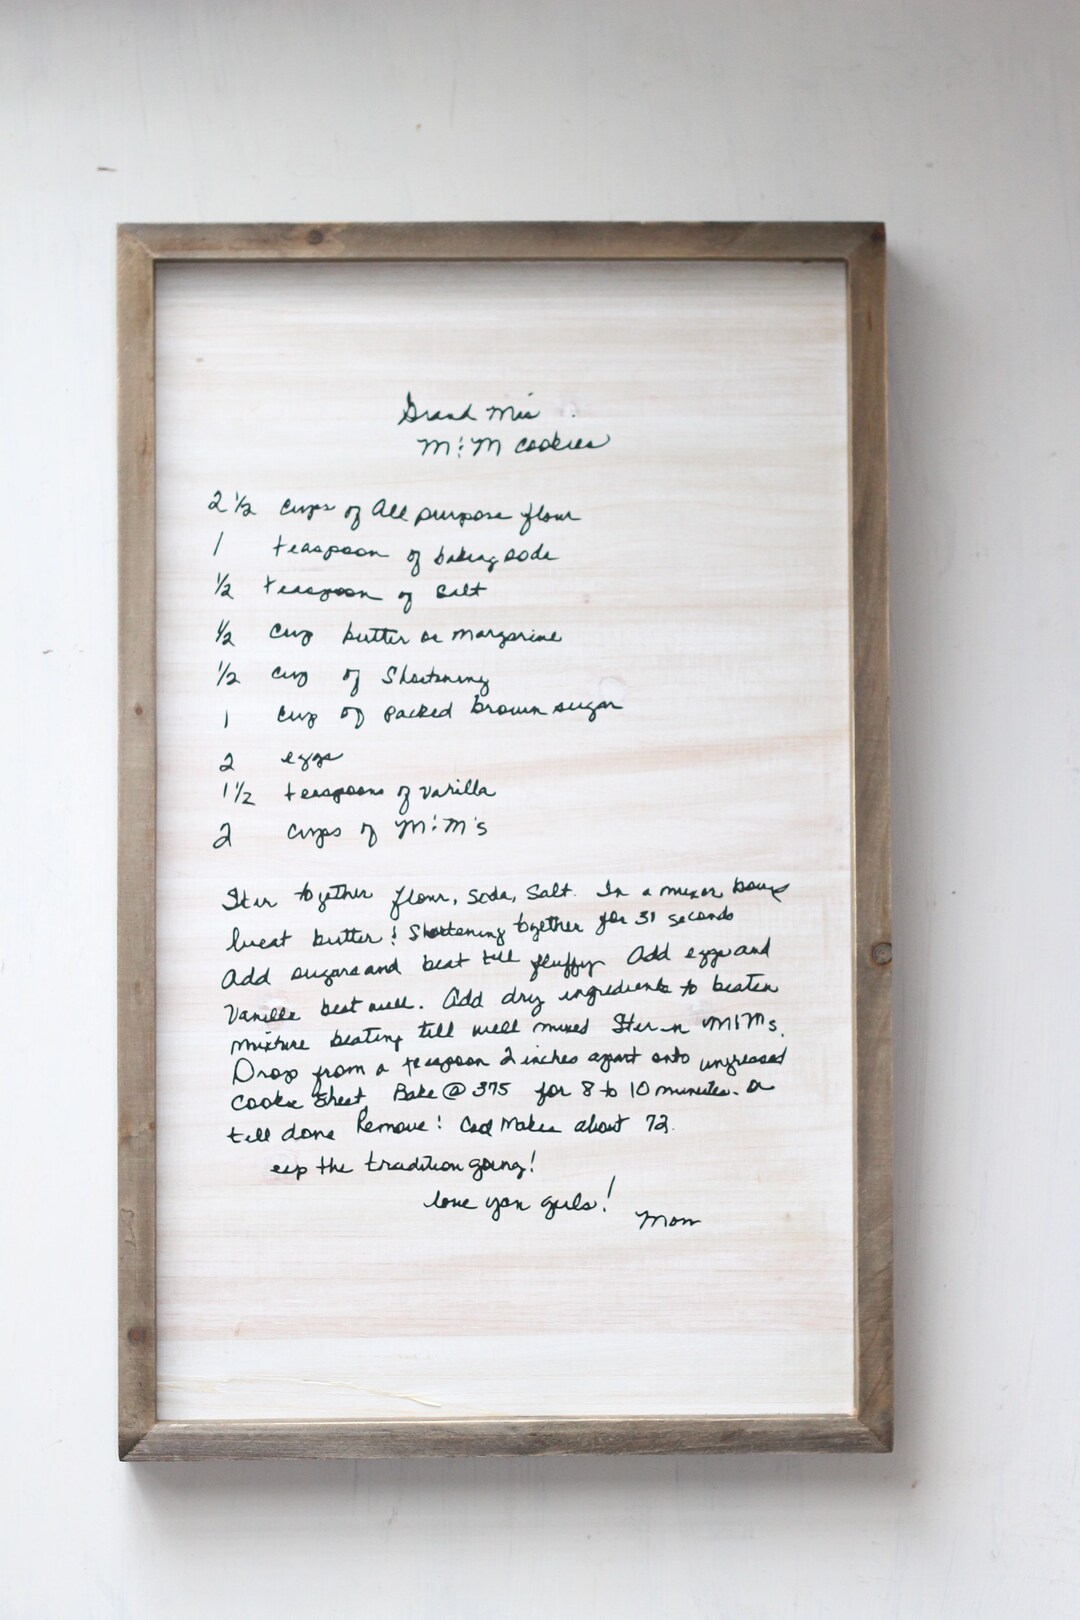 Grand Mis
M&M Cookies
2 1/2 cups of All purpose flour
1 teaspoon of baking soda
1/2 teaspoon of salt
1/2 cup butter or margarine
1/2 cup of Shortening
1 cup of packed brown sugar
2 eggs
1 1/2 teaspoons of vanilla
2 cups of M&M's
Stir together flour, soda, salt. In a mixer bowl
beat butter & Shortening together for 31 seconds
Add sugars and beat till fluffy Add eggs and
Vanilla beat well. Add dry ingredients to beaten
mixture beating till well mixed Stir in M&Ms.
Drop from a teaspoon 2 inches apart onto ungreased
Cookie Sheet Bake @ 375 for 8 to 10 minutes. or
till done Remove & Cool Makes about 72.
eep the tradition going!
love you girls!
Mom